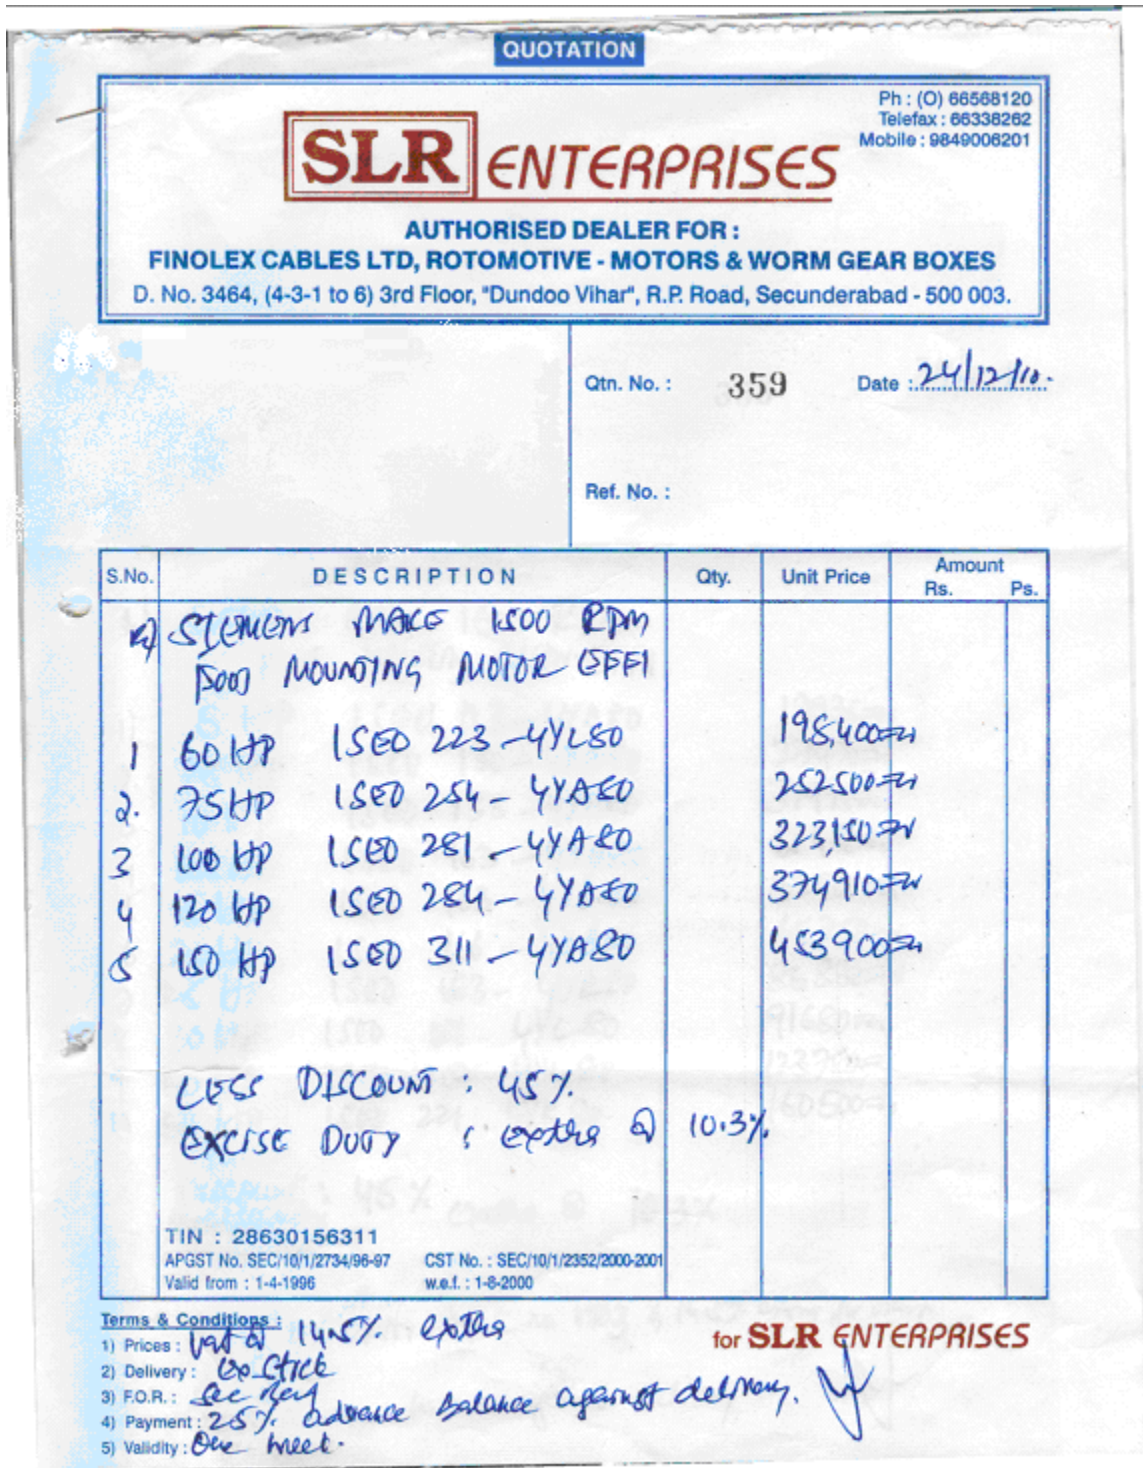 QUOTATION
Ph : (O) 66568120
Telefax : 66338262
Mobile : 9849006201
SLR ENTERPRISES
AUTHORISED DEALER FOR :
FINOLEX CABLES LTD, ROTOMOTIVE - MOTORS & WORM GEAR BOXES
D. No. 3464, (4-3-1 to 6) 3rd Floor, "Dundoo Vihar", R.P. Road, Secunderabad - 500 003.
Qtn. No. : 359 Date : 24/12/10.
Ref. No. :
S.No. DESCRIPTION Qty. Unit Price Amount Rs. Ps.
SIEMENS MAKE 1500 RPM
FOOT MOUNTING MOTOR EFF1
1 60 HP 1SE0 223-4YL80 198,400=00
2. 75HP 1SE0 254-4YA80 252500=00
3 100 HP 1SE0 281-4YA80 323,150=00
4 120 HP 1SE0 284-4YA80 374910=00
5 150 HP 1SE0 311-4YA80 453900=00
LESS DISCOUNT : 45%
EXCISE DUTY : extra @ 10.3%
TIN : 28630156311
APGST No. SEC/10/1/2734/96-97 CST No. : SEC/10/1/2352/2000-2001
Valid from : 1-4-1996 w.e.f. : 1-8-2000
Terms & Conditions :
for SLR ENTERPRISES
1) Prices : Vat @ 14.5% extra
2) Delivery : Ex-Stock
3) F.O.R. : Sec
4) Payment : 25% advance Balance against delivery.
5) Validity : One week.